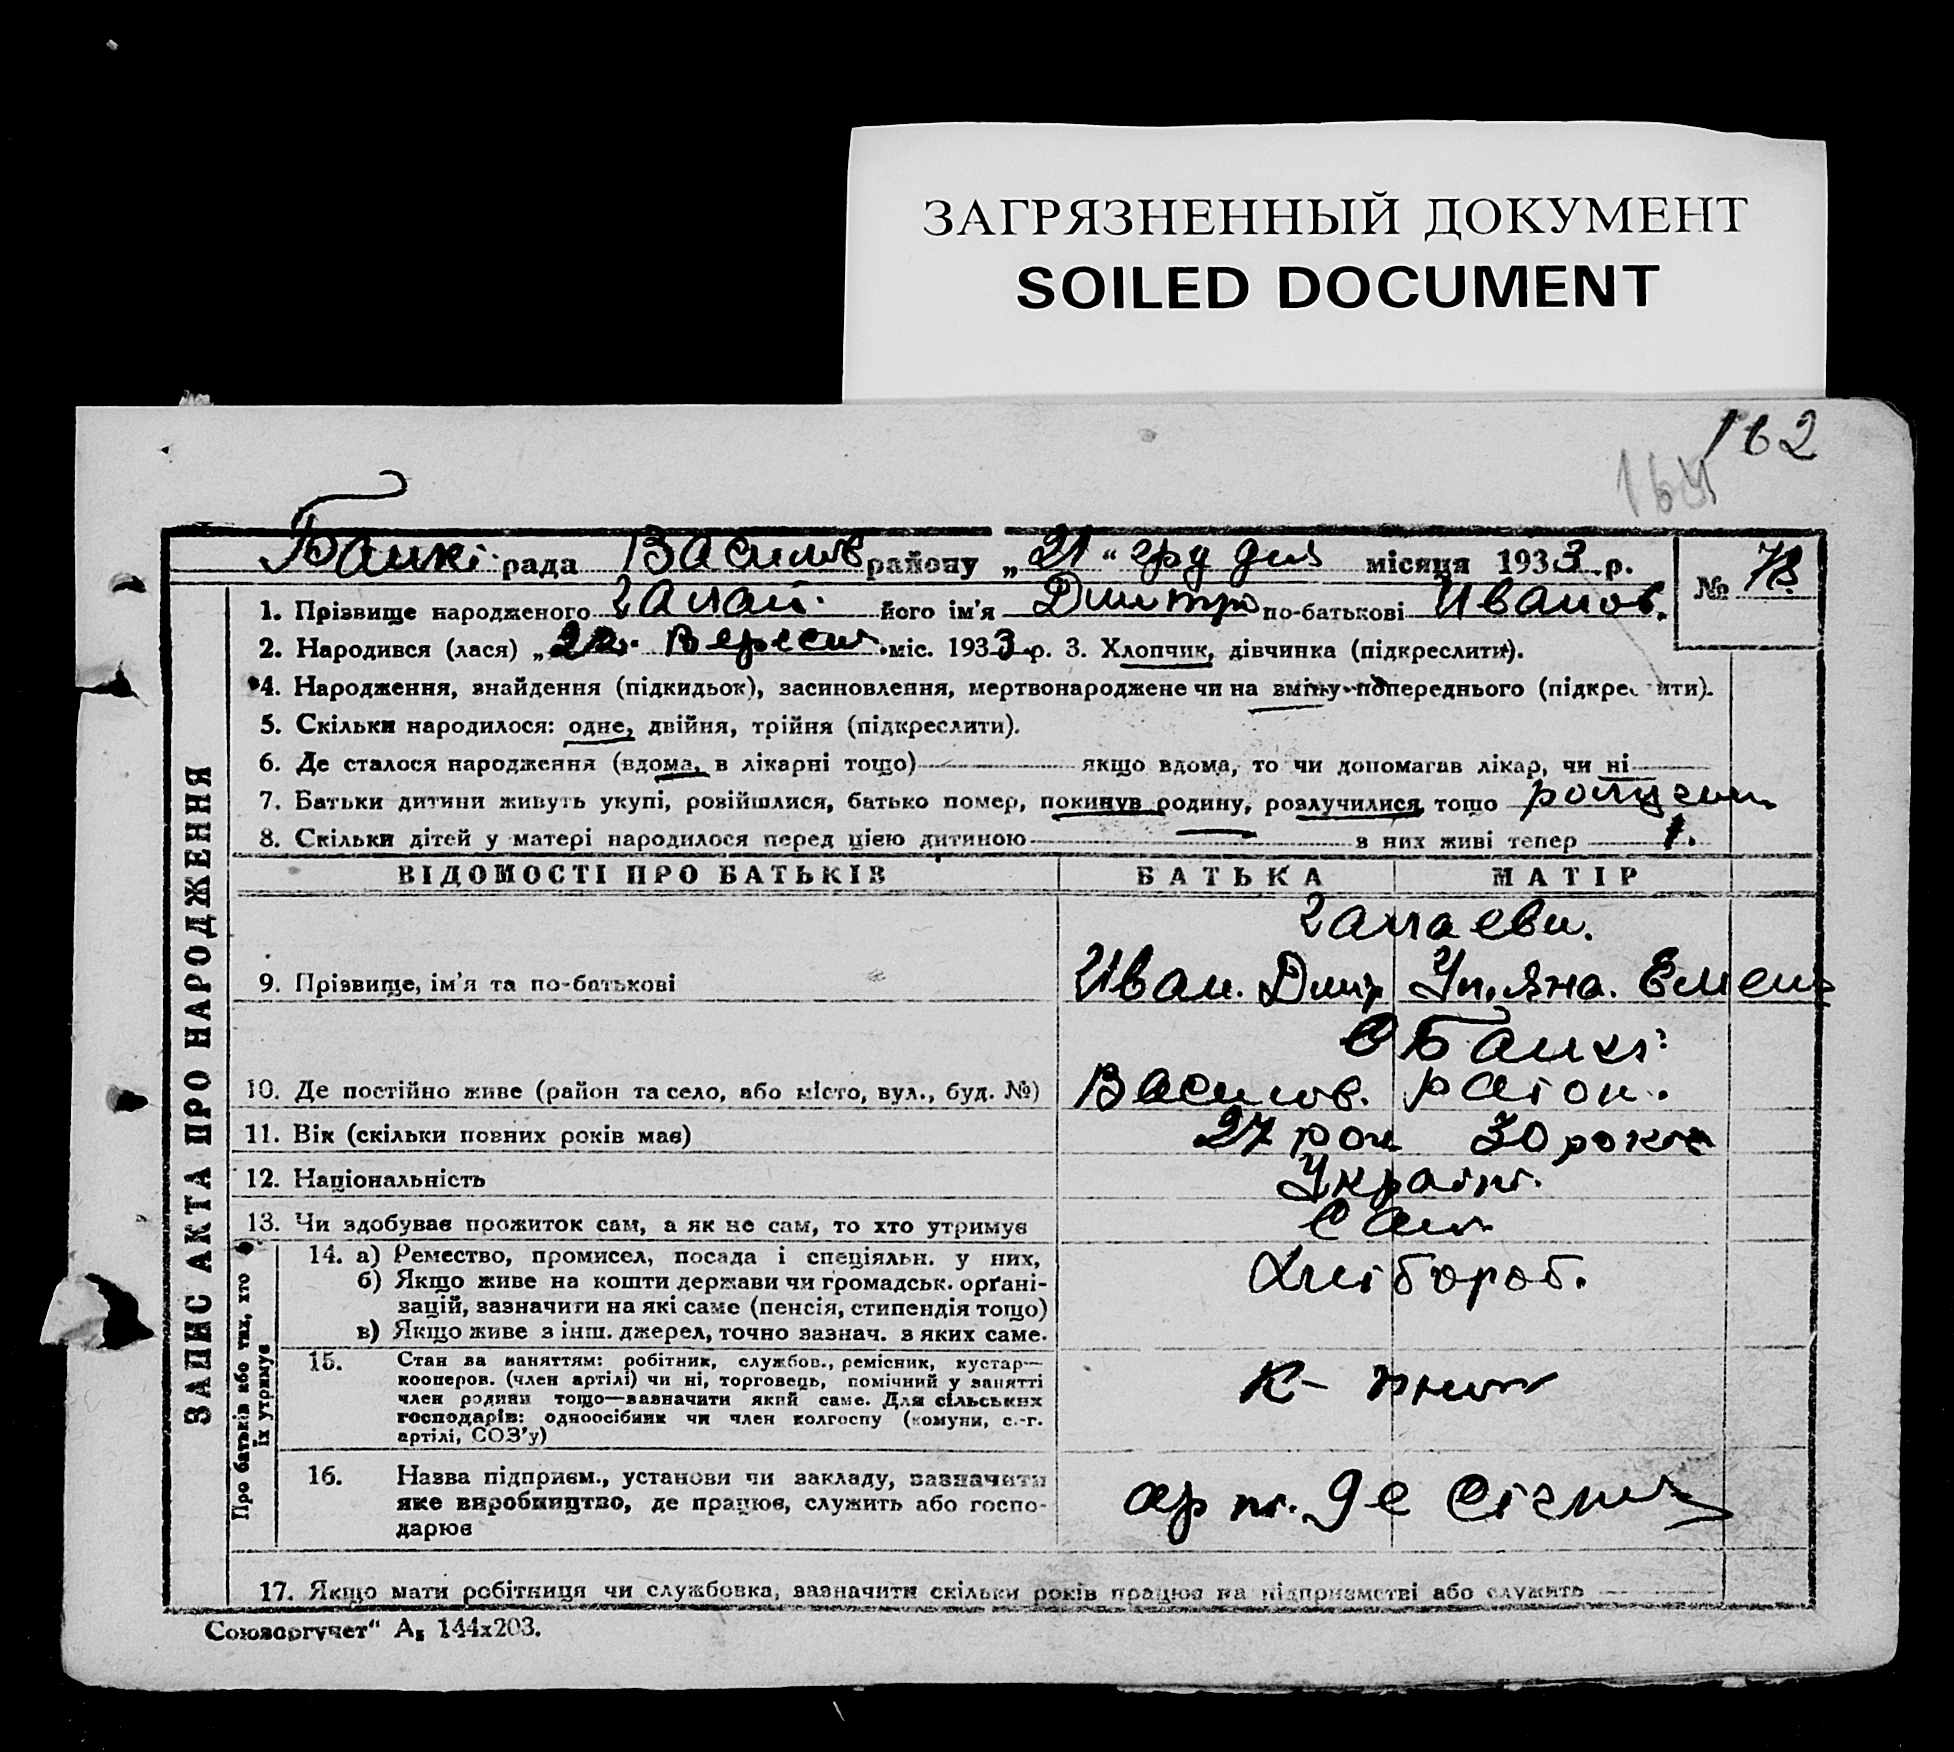 ЗАГРЯЗНЕННЫЙ ДОКУМЕНТ
SOILED DOCUMENT
162
164
рада Василів району „21“ грудня місяця 1933 р. № 78
1. Прізвище народженого Галай його ім'я Дмитро по-батькові Иванов.
2. Народився (лася) „ Вересня міс. 1933 р. 3. Хлопчик, дівчинка (підкреслити).
4. Народження, знайдення (підкидьок), засиновлення, мертвонароджене чи на зміну попереднього (підкреслити).
5. Скільки народилося: одне, двійня, трійня (підкреслити).
6. Де сталося народження (вдома, в лікарні тощо) якщо вдома, то чи допомагав лікар, чи ні
7. Батьки дитини живуть укупі, розійшлися, батько помер, покинув родину, розлучилися тощо
8. Скільки дітей у матері народилося перед цією дитиною — в них живі тепер 1.
ЗАПИС АКТА ПРО НАРОДЖЕННЯ
ВІДОМОСТІ ПРО БАТЬКІВ БАТЬКА МАТІР
Галаеви.
9. Прізвище, ім'я та по-батькові Иван. Дмит Ул,яна. Емел
10. Де постійно живе (район та село, або місто, вул., буд. №) Василів. раіон.
11. Вік (скільки повних років має) 27 рок 30 років
12. Національність Україн.
13. Чи здобуває прожиток сам, а як не сам, то хто утримує сам
Про батьків або тих, хто їх утримує
14. а) Ремество, промисел, посада і спеціяльн. у них, Хлібороб.
б) Якщо живе на кошти держави чи громадськ. орґані-
зацій, зазначити на які саме (пенсія, стипендія тощо)
в) Якщо живе з інш. джерел, точно зазнач. з яких саме.
15. Стан за заняттям: робітник, службов., ремісник, кустар—
кооперов. (член артілі) чи ні, торговець, помічний у занятті
член родини тощо—зазначити який саме. Для сільських
господарів: одноосібник чи член колгоспу (комуни, с.-г.
артілі, СОЗ'у)
16. Назва підприєм., установи чи закладу, зазначити
яке виробництво, де працює, служить або госпо-
дарює
17. Якщо мати робітниця чи службовка, зазначити скільки років працює на підприємстві або служить
Союзоргучет“ А₅ 144х203.